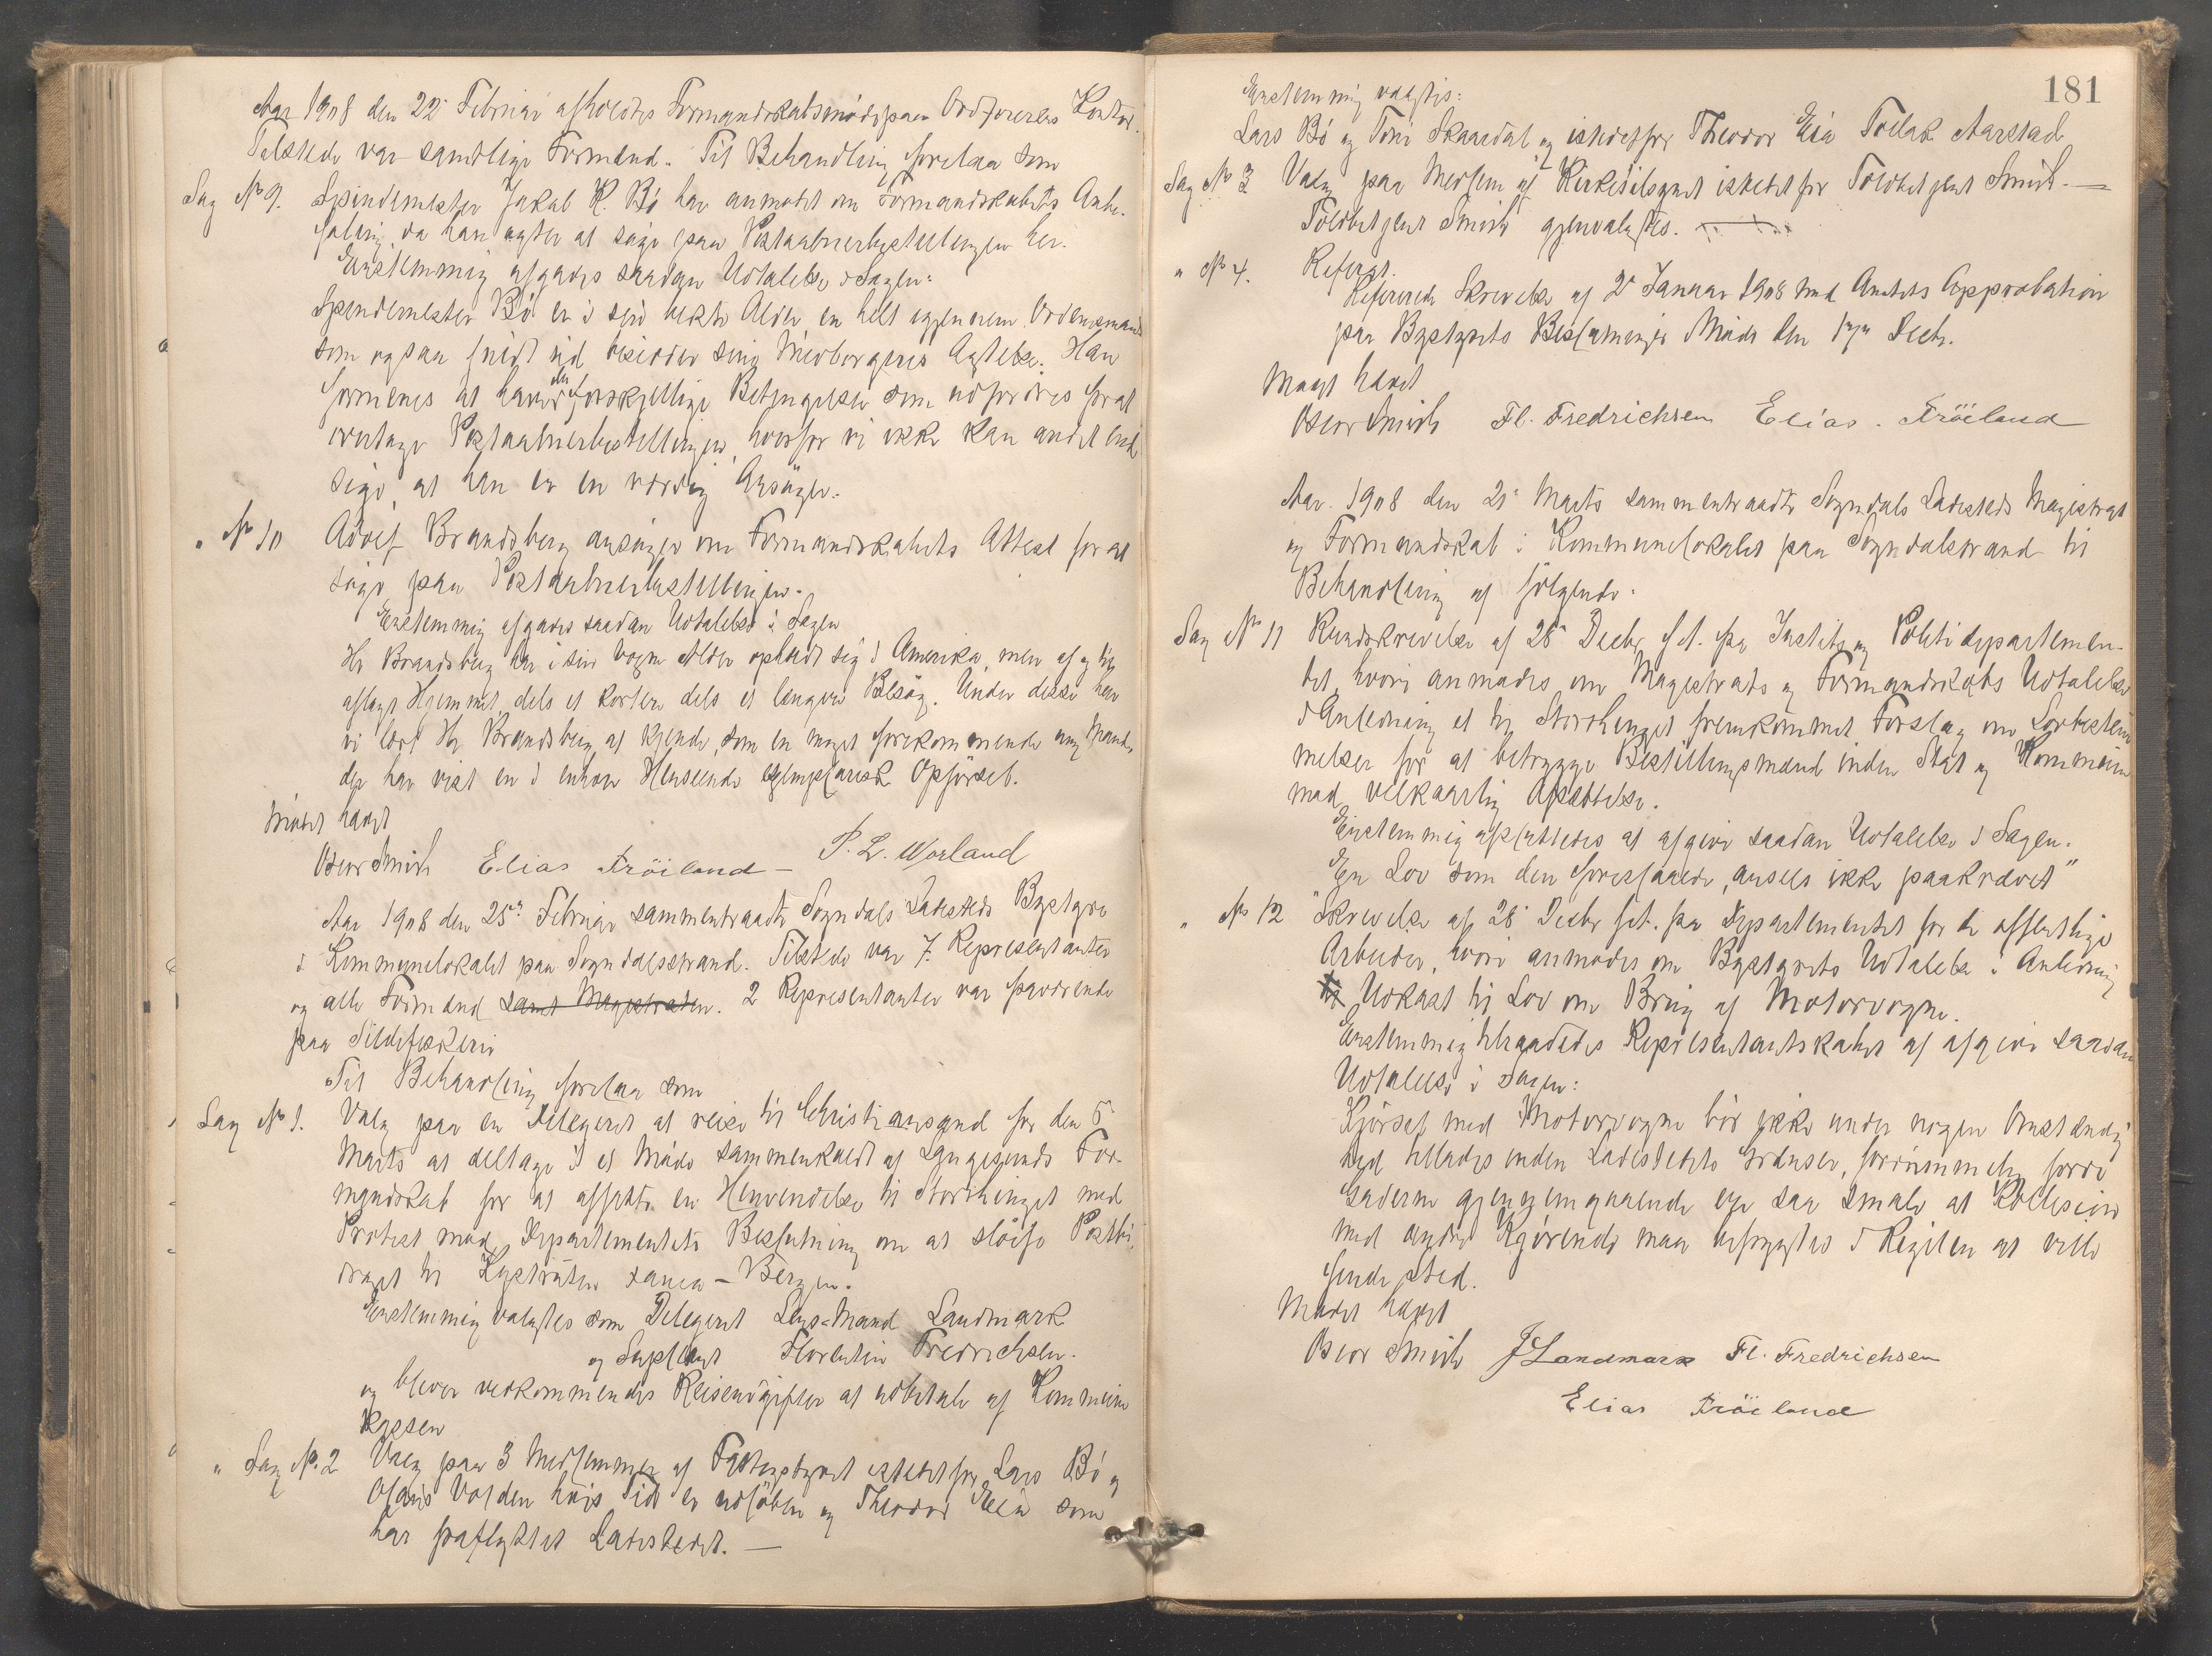 Aar 1908 den 22 Februar afholdtes Formandskabsmöde paa Ordførerens Kontor.
Tilstede var samtlige Formænd. Til Behandling forelaa som
Sag No 9. Spindemester Jakob K. Bö har anmodet om Formandskabets Anbe-
faling, da han agter at söge paa Postaabnerbestillingen her.
Enstemmig afgaves saadan Udtalelse i Sagen:
Spindemester Bö er i sin bedste Alder, en helt igjennem Ordensmand
som ogsaa fuldt ud besidder sine Medborgeres Agtelse. Han
formenes at have de forskjellige Betingelser som udfordres for at
overtage Postaabnerbestillingen, hvorfor vi ikke kan andet end
sige, at han er en værdig Ansöger.
" No 10 Adolf Brandsberg ansöger om Formandskabets Attest for at
söge paa Postaabnerbestillingen.
Enstemmig afgaves saadan Udtalelse i Sagen
Hr Brandsberg har i sin voxne Alder opholdt sig i Amerika, men af og til
aflagt Hjemmet, dels et kortere dels et længere Besög. Under disse har
vi lært Hr Brandsberg at kjende, som en meget forekommende ung Mand,
der har vist en i enhver Henseende exemplarisk Opförsel.
Mödet hævet
Oscar Smith Elias Fröiland – P. L. Worland
Aar 1908 den 25de Februar sammentraadte Sogndals Ladesteds Bystyre
i Kommunelokalet paa Sogndalsstrand. Tilstede var 7 Repræsentanter
og alle Formænd samt Magistraten. 2 Repræsentanter var fraværende
paa Sildefiskeri
Til Behandling forelaa som
Sag No 1. Valg paa en Delegeret at reise til Christiansand for den 5
Marts at deltage i et Möde sammenkaldt af Langesunds For-
mandskab for at affatte en Henvendelse til Storthinget med
Protest mod Departementets Beslutning om at slöife Postbi-
draget til Kystruten – Bergen.
Enstemmig valgtes som Delegeret Lens-Mand Landmark
og Suppleant Florentin Fredrichsen.
og blever vedkommendes Reiseudgifter at udbetale af Kommune
Kassen
" Sag No. 2 Valg paa 3 Medlemmer af Fattigstyret istedetfor Lars Bö og
Olaus Valden hvis Tid er udlöben og Theodor Eia som
har fraflyttet Ladestedet. —
181
Enstemmig valgtes:
Lars Bö og Toni Skaardal og istedetfor Theodor Eia Tollak Aarstad
Sag No 3 Valg paa Medlem af Kirketilsynet istedetfor Toldbetjent Smith. —
Toldbetjent Smith gjenvalgtes.
" No 4. Referat.
Refererede Skrivelse af 2 Januar 1908 med Amtets Approbation
paa Bystyrets Beslutninger i Möde den Decbr.
Mödet hævet
Oscar Smith Fl. Fredrichsen Elias. Fröiland
Aar. 1908 den 21 Marts sammentraadte Sogndals Ladesteds Magistrat
og Formandskab i Kommunelokalet paa Sogndalstrand til
Behandling af følgende.
Sag No 11 Rundskrivelse af 28 Decbr f.A. fra Justits og Politidepartemen-
tet, hvori anmodes om Magistrats og Formandskabs Udtalelse
i Anledning et til Storthinget fremkommet Forslag om Lovbestem
melser for at betrygge Bestillingsmænd inden Stat og Kommune
mod vilkaarlig Afsættelse.
Enstemmig besluttedes at afgive saadan Udtalelse i Sagen.
"En Lov som den foreslaaede, ansees ikke paakrævet"
" No 12 Skrivelse af 28 Decbr fst. fra Departementet for de offentlige
Arbeider, hvori anmodes om Bystyrets Udtalelse i Anledning
Udkast til Lov om Brug af Motorvogne.
Enstemmig tilraadedes Repræsentantskabet at afgive saadan
Udtalelse i Sagen:
Kjörsel med Motorvogne bör ikke under nogen Omstændig
hed tillades inden Ladestedets Grændser, fornemmelig fordi
Gaderne gjennemgaaende ere saa smale at Kollision
med andre Kjörende maa befrygtes i Regelen at ville
finde sted.
Mödet hævet
Oscar Smith J Landmark Fl. Fredrichsen
Elias Fröiland